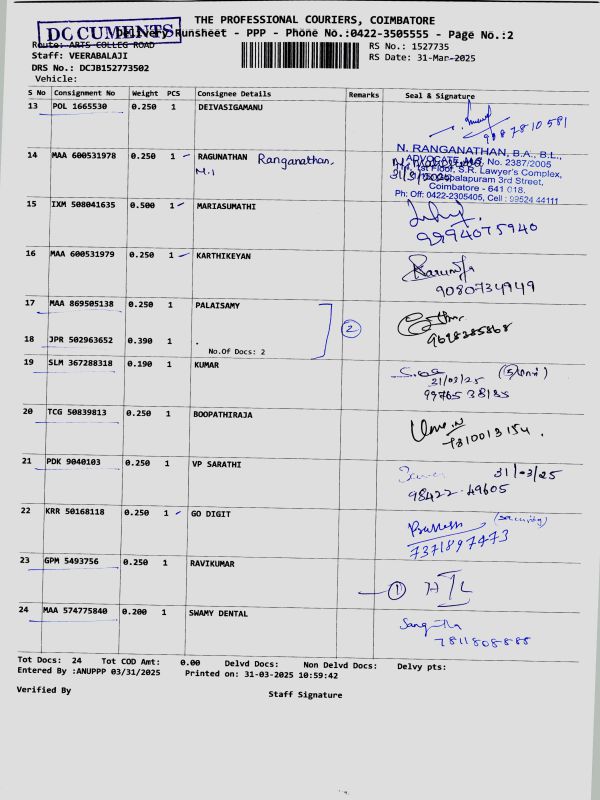 THE PROFESSIONAL COURIERS, COIMBATORE
DOCUMENTS
Delivery Runsheet - PPP - Phone No.:0422-3505555 - Page No.:2
Route: ARTS COLLEG ROAD
RS No.: 1527735
Staff: VEERABALAJI
RS Date: 31-Mar-2025
DRS No.: DCJB152773502
Vehicle:
S No Consignment No Weight PCS Consignee Details Remarks Seal & Signature
13 POL 1665530 0.250 1 DEIVASIGAMANU
9087810581
14 MAA 600531978 0.250 1 RAGUNATHAN Ranganathan,
M.,
N. RANGANATHAN, B.A., B.L.,
ADVOCATE, M.S. No. 2387/2005
1st Floor, S.R. Lawyer's Complex,
31/3/2025
3rd Street,
Coimbatore - 641 018.
Ph: Off: 0422-2305405, Cell : 99524 44111
15 IXM 508041635 0.500 1 MARIASUMATHI
9994075940
16 MAA 600531979 0.250 1 KARTHIKEYAN
9080734949
17 MAA 869505138 0.250 1 PALAISAMY
2
18 JPR 502963652 0.390 1 .
No.Of Docs: 2
19 SLM 367288318 0.190 1 KUMAR
31/03/25
20 TCG 50839813 0.250 1 BOOPATHIRAJA
7810013154.
21 PDK 9040103 0.250 1 VP SARATHI
31/03/25
98422-49605
22 KRR 50168118 0.250 1 GO DIGIT
(security)
7371897473
23 GPM 5493756 0.250 1 RAVIKUMAR
1
24 MAA 574775840 0.200 1 SWAMY DENTAL
Sangitha
7811808885
Tot Docs: 24 Tot COD Amt: 0.00 Delvd Docs: Non Delvd Docs: Delvy pts:
Entered By :ANUPPP 03/31/2025 Printed on: 31-03-2025 10:59:42
Verified By
Staff Signature